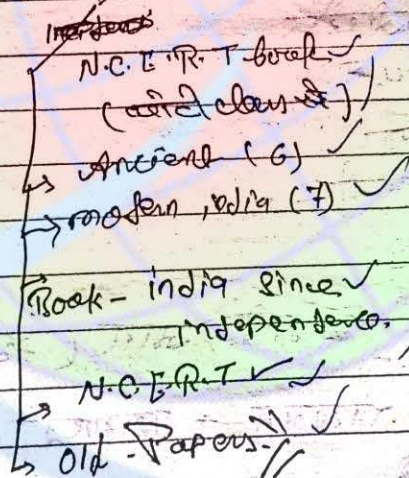 N.C.E.R.T book
(class
Ancient (6)
modern india (7)
Book - india since
independence.
N.C.E.R.T
Old - Papers -